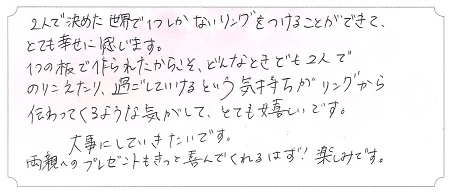 2人で決めた世界で1つしかないリングをつけることができて、
とても幸せに感じます。
1つの板で作られたからこそ、どんなときでも2人で
のりこえたり、過ごしていけるという気持ちがリングから
伝わってくるような気がして、とても嬉しいです。
大事にしていきたいです。
両親へのプレゼントもきっと喜んでくれるはず!楽しみです。